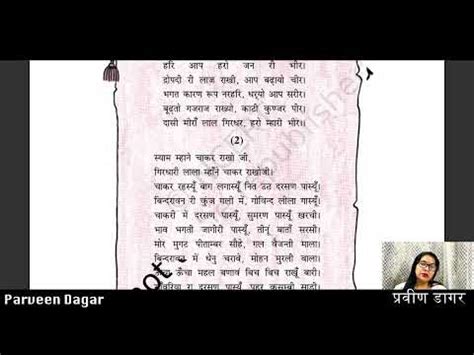 हरि आप हरो जन री भीर।
द्रोपदी री लाज राखी, आप बढ़ायो चीर।
भगत कारण रूप नरहरि, धर्यो आप सरीर।
बूढ़तो गजराज राख्यो, काटी कुण्जर पीर।
दासी मीराँ लाल गिरधर, हरो म्हारी भीर॥
(2)
स्याम म्हाने चाकर राखो जी,
गिरधारी लाला म्हाँने चाकर राखोजी।
चाकर रहस्यूँ बाग लगास्यूँ नित उठ दरसण पास्यूँ।
बिन्दरावन री कुंज गली में, गोविन्द लीला गास्यूँ।
चाकरी में दरसण पास्यूँ, सुमरण पास्यूँ खरची।
भाव भगती जागीरी पास्यूँ, तीनूं बाताँ सरसी।
मोर मुगट पीताम्बर सौहे, गल वैजन्ती माला।
बिन्दरावन में धेनु चरावे, मोहन मुरली वाला।
ऊँचा महल बणाव बिच बिच राखूँ बारी।
रा दरसण पास्यूँ, पहर कुसुम्बी साड़ी।
Parveen Dagar
प्रवीण डागर